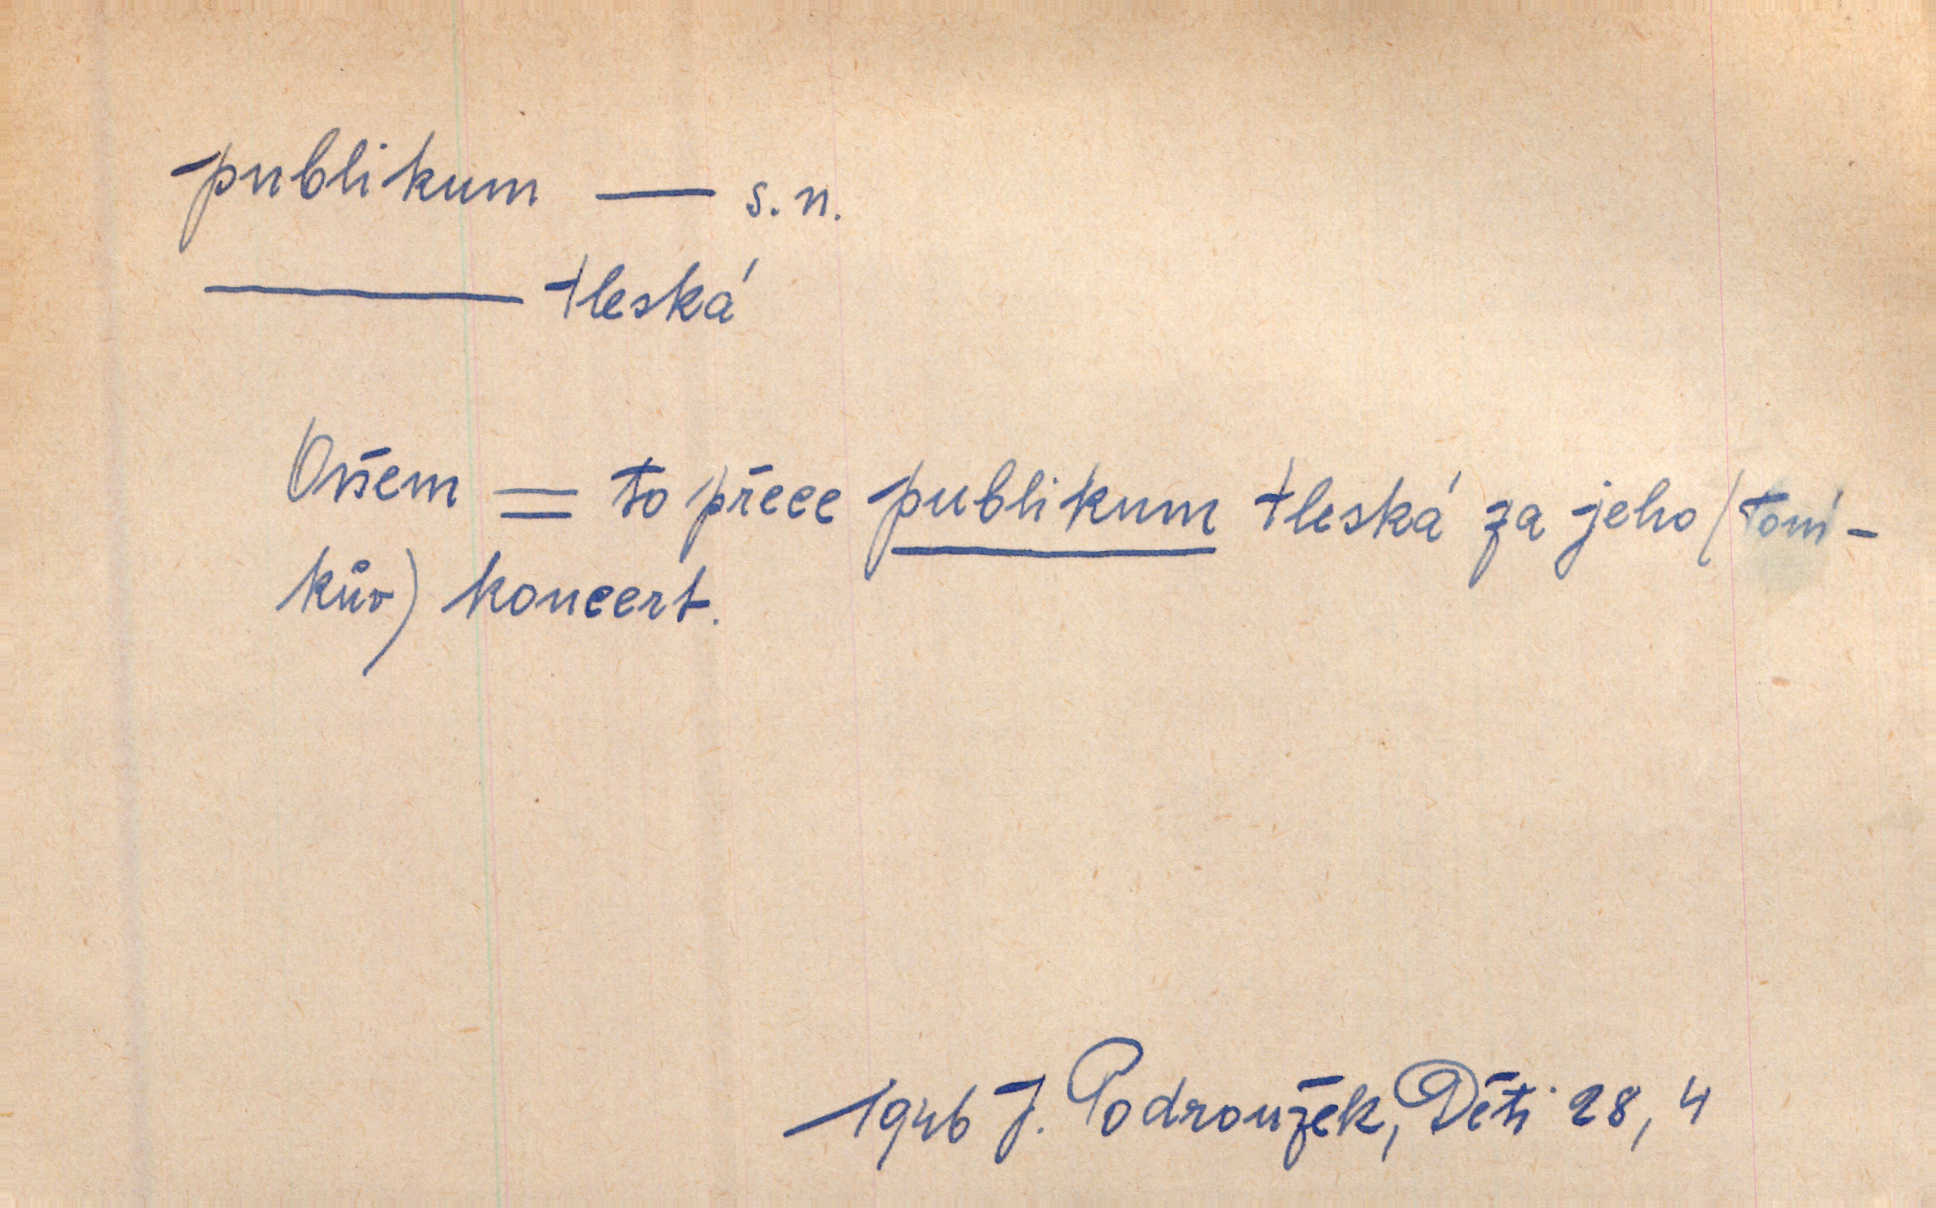 publikum — s. n.
——— tleská
Ovšem = to přece publikum tleská za jeho (Toní-
kův) koncert.
1946 J. Podroužek, Děti 28, 4